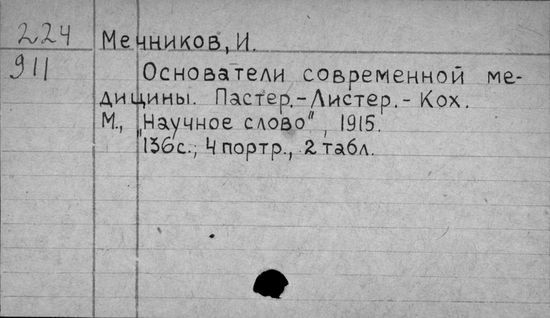 224 Мечников, И.
911 Основатели современной ме-
дицины. Пастер.-Листер.- Кох.
М., "Научное слово", 1915.
136с.; 4 портр., 2 табл.